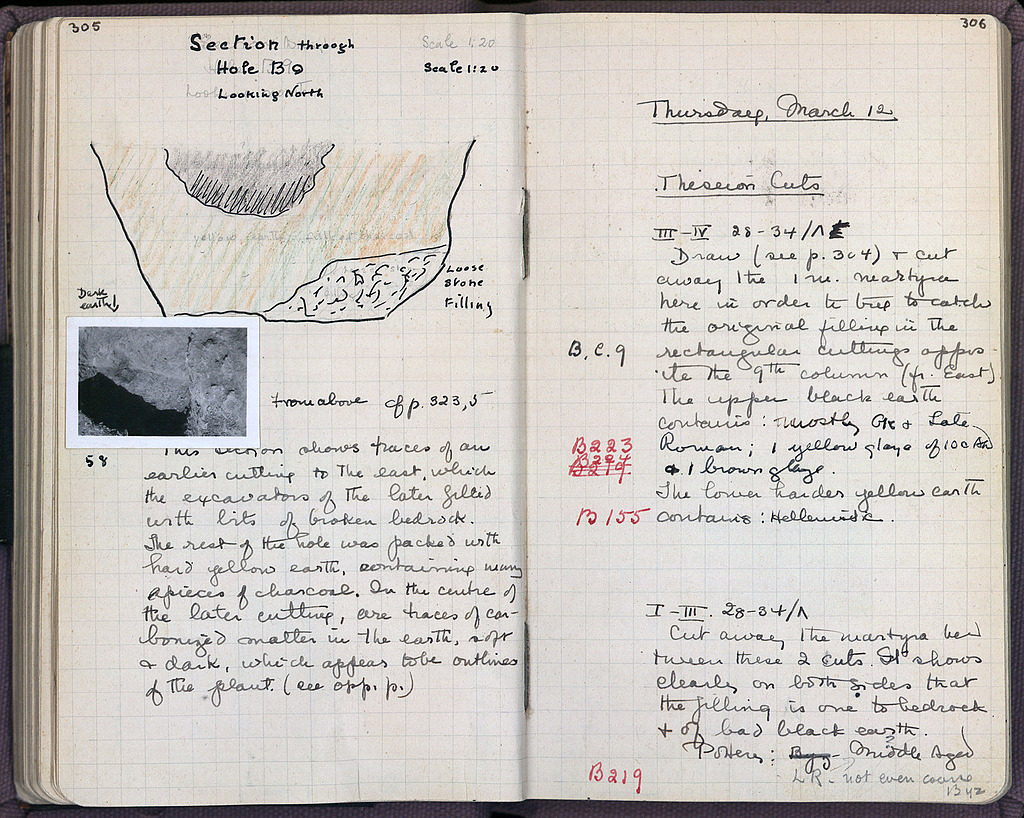 305
Section through
Hole B9
Looking North
Scale 1:20
Scale 1:20
Loose
stone
Filling
Dark
earth
From above cf p. 323,5
58
This section shows traces of an
earlier cutting to the east, which
the excavators of the later filled
with bits of broken bedrock.
The rest of the hole was packed with
hard yellow earth, containing many
pieces of charcoal. In the centre of
the later cutting, are traces of car-
bonized matter in the earth, soft
& dark, which appears to be outlines
of the plant. (see opp. p.)
306
Thursday, March 12
Theseion Cuts
III-IV 28-34/Λ
Draw (see p. 304) & cut
away the 1 m. martyra
here in order to try to catch
the original filling in the
B.C. 9
rectangular cuttings oppos-
ite the 9th column (fr. East)
The upper black earth
contains: mostly Gk & Late
B223
Roman; 1 yellow glaze of 10c AD
B224
B219
& 1 brown glaze.
The lower harder yellow earth
B155
contains: Hellenistic.
I-III. 28-34/Λ
Cut away the martyra be-
tween these 2 cuts. It shows
clearly on both sides that
the filling is one to bedrock
& of bad black earth.
Pottery: Byz- Middle Aged
B219
LR - not even coarse
Byz